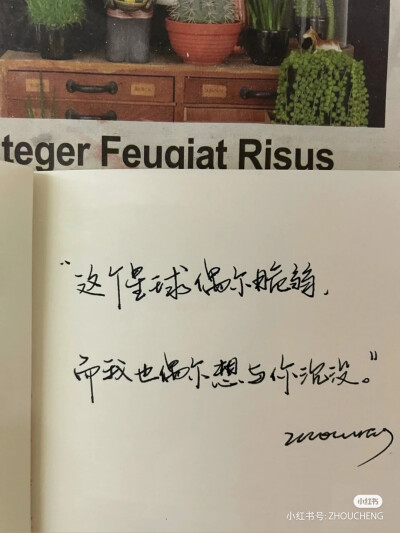 teger Feugiat Risus
“这个星球偶尔脆弱，
而我也偶尔想与你沉没。”
小红书
小红书号: ZHOUCHENG